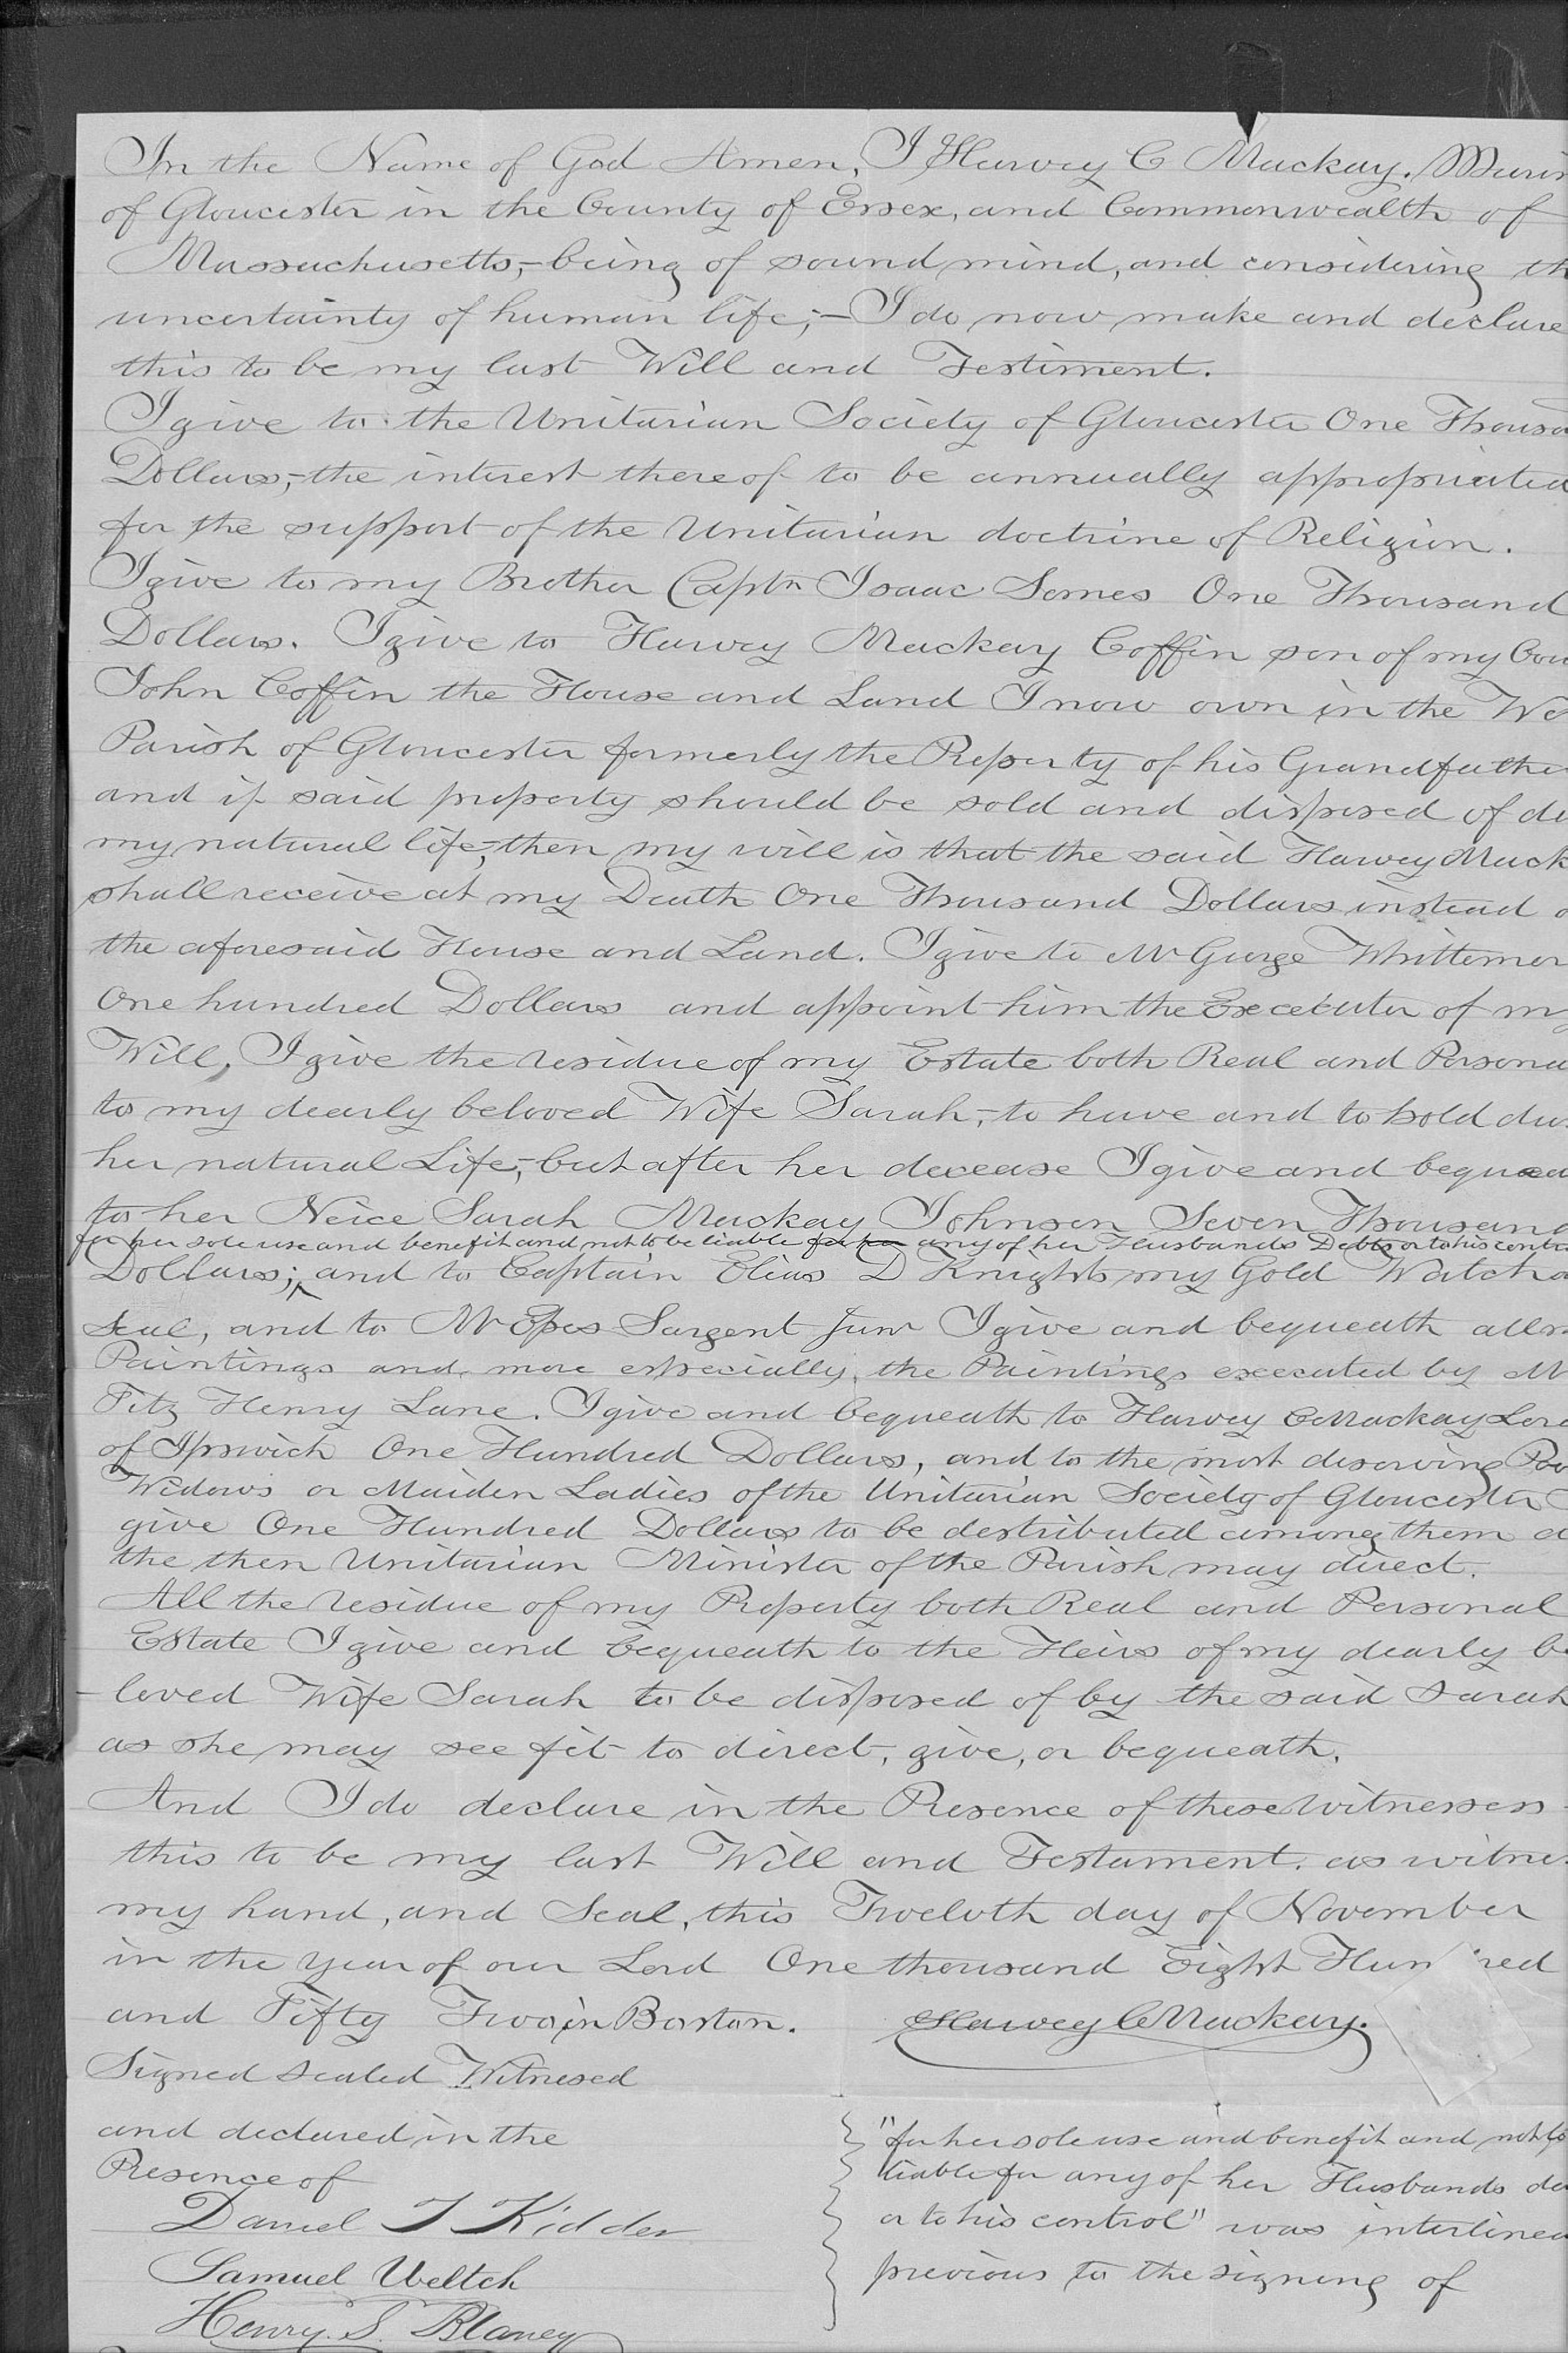 In the Name of God Amen, I Harvey C Mackay. Marin
of Gloucester in the County of Essex, and Commonwealth of
Massachusetts,- being of sound mind, and considering th
uncertainty of human life;- I do now make and declare
this to be my last Will and Testiment.
I give to the Unitarian Society of Gloucester One Thousa
Dollars,- the interest thereof to be annually appropriated
for the support of the Unitarian doctrine of Religion.
I give to my Brother Captn Isaac Somes One Thousand
Dollars. I give to Harvey Mackay Coffin son of my Cou
John Coffin the House and Land I now own in the We
Parish of Gloucester formerly the Property of his Grandfather
and if said property should be sold and disposed of du
my natural life,- then my will is that the said Harvey Mack
shall receive at my Death One Thousand Dollars instead o
the aforesaid House and Land. I give to Mr George Whittemor
One hundred Dollars and appoint him the Excecuter of my
Will, I give the residue of my Estate both Real and Persona
to my dearly beloved Wife Sarah,- to have and to hold dur
her natural Life,- but after her decease I give and bequea
to her Neice Sarah Mackay Johnson Seven Thousand
for her sole use and benefit and not to be liable for her any of her Husbands Debts or to his contro
Dollars; and to Captain Elias D Knights my Gold Watch a
Seal, and to Mr Epes Sargent Junr I give and bequeath all m
Paintings and more especially the Paintings excecuted by M
Fitz Henry Lane. I give and bequeath to Harvey C Mackay Lord
of Ipswich One Hundred Dollars, and to the most deserving Poo
Widows or Maiden Ladies of the Unitarian Society of Gloucester I
give One Hundred Dollars to be destributed among them as
the then Unitarian Minister of the Parish may direct.
All the residue of my Property both Real and Personal
Estate I give and bequeath to the Heirs of my dearly be
-loved Wife Sarah to be disposed of by the said Sarah
as she may see fit to direct, give, or bequeath.
And I do declare in the Presence of these Witnesses
this to be my last Will and Testament. as witnes
my hand, and Seal, this Twelvth day of November
in the year of our Lord One thousand Eight Hun red
and Fifty Two in Boston. Harvey C Mackay.
Signed sealed Witnesed
and declared in the
Presence of
Daniel T Kidder
Samuel Weltch
Henry. S. Blaney
"for her sole use and benefit and not to
liable for any of her Husbands de
or to his control" was interlined
previous to the signing of